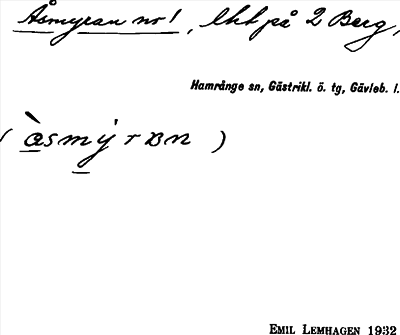 Åsmyran nr 1, lht på 2 Berg,
Hamrånge sn, Gästrikl. ö. tg, Gävleb. l.
( àsmẏrʙn )
EMIL LEMHAGEN 1932